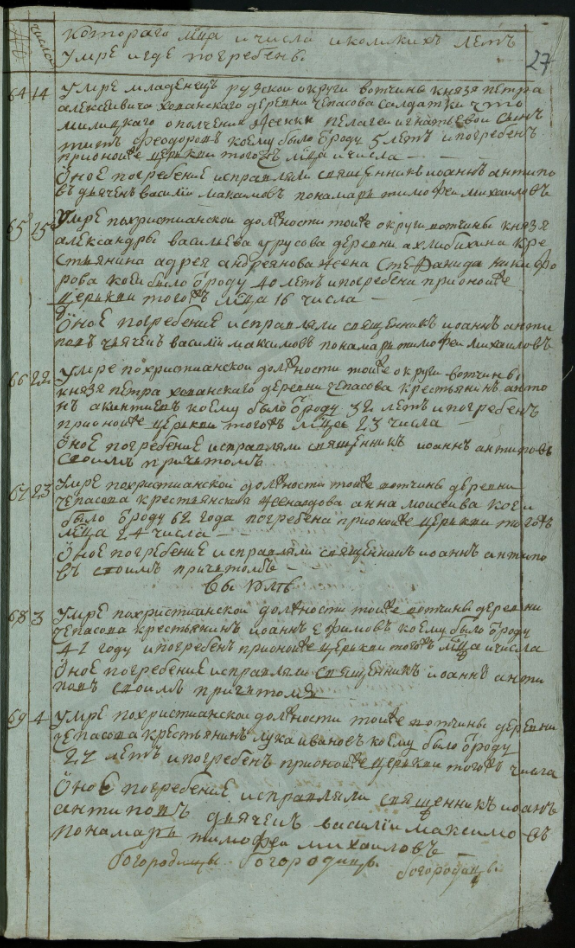 № число котораго мца и числа и коликихъ летъ
умре и где погребенъ
27
64 14 умре младенецъ рузской округи вотчины князя петра
алексеивича хованскаго деревни чепасова салдатки что
милицкаго ополчения женки пелагеи игнатьевой сынъ
титъ феодоровъ коему было ѿроду 5 летъ и погребенъ
при оной же церькви тогожъ мца и числа
Оное погребение исправляли священникъ иоаннъ антипо
въ дьячекъ василии макимовъ понамарь тимофеи михаиловъ
65 15 умре по христианской должности тойже округи вотчины князя
александры васильева урусова деревни ахлюбихина кре
стьянина адрея андреянова жена стефанида никифо
рова коей было ѿроду 40 летъ и погребена при оной же
церькви тогожъ мца 16 числа
Оное погребение исправляли священникъ иоаннъ анти
повъ дьячекъ василии максимовъ понамарь тимофеи михаиловъ
66 22 умре по христианской должности тойже округи вотчины
князя петра хованскаго деревни чепасова крестьянинъ анто
нъ акинтиевъ коему было ѿроду 32 летъ и погребенъ
при оной же церькви тогожъ мца 23 числа
Оное погребение исправляли священникъ иоаннъ антиповъ
своимъ причетомъ
67 23 умре по христианской должности тойже вотчины деревни
чепасова крестьянская жена вдова анна моисеива коеи
было ѿроду 62 года погребена при оной же церькви тогожъ
мца 24 числа
Оное погребение исправляли священникъ иоаннъ антипо
въ своимъ причетомъ
68 3 умре по христианской должности тойже вотчины деревни
чепасова крестьянинъ иоаннъ ефимовъ коему было ѿроду
41 году и погребенъ при оной же церькви тогожъ мца и числа
Оное погребение исправляли священникъ иоаннъ анти
повъ своимъ причетомъ
69 4 умре по христианской должности тойже вотчины деревни
чепасова крестьянинъ лука ивановъ коему было ѿроду
летъ и погребенъ при оной же церькви тогожъ числа
Оное погребение исправляли священникъ иоаннъ
антиповъ дьячекъ василии максимовъ
понамарь тимофеи михаиловъ
богородицы богородицы богородицы